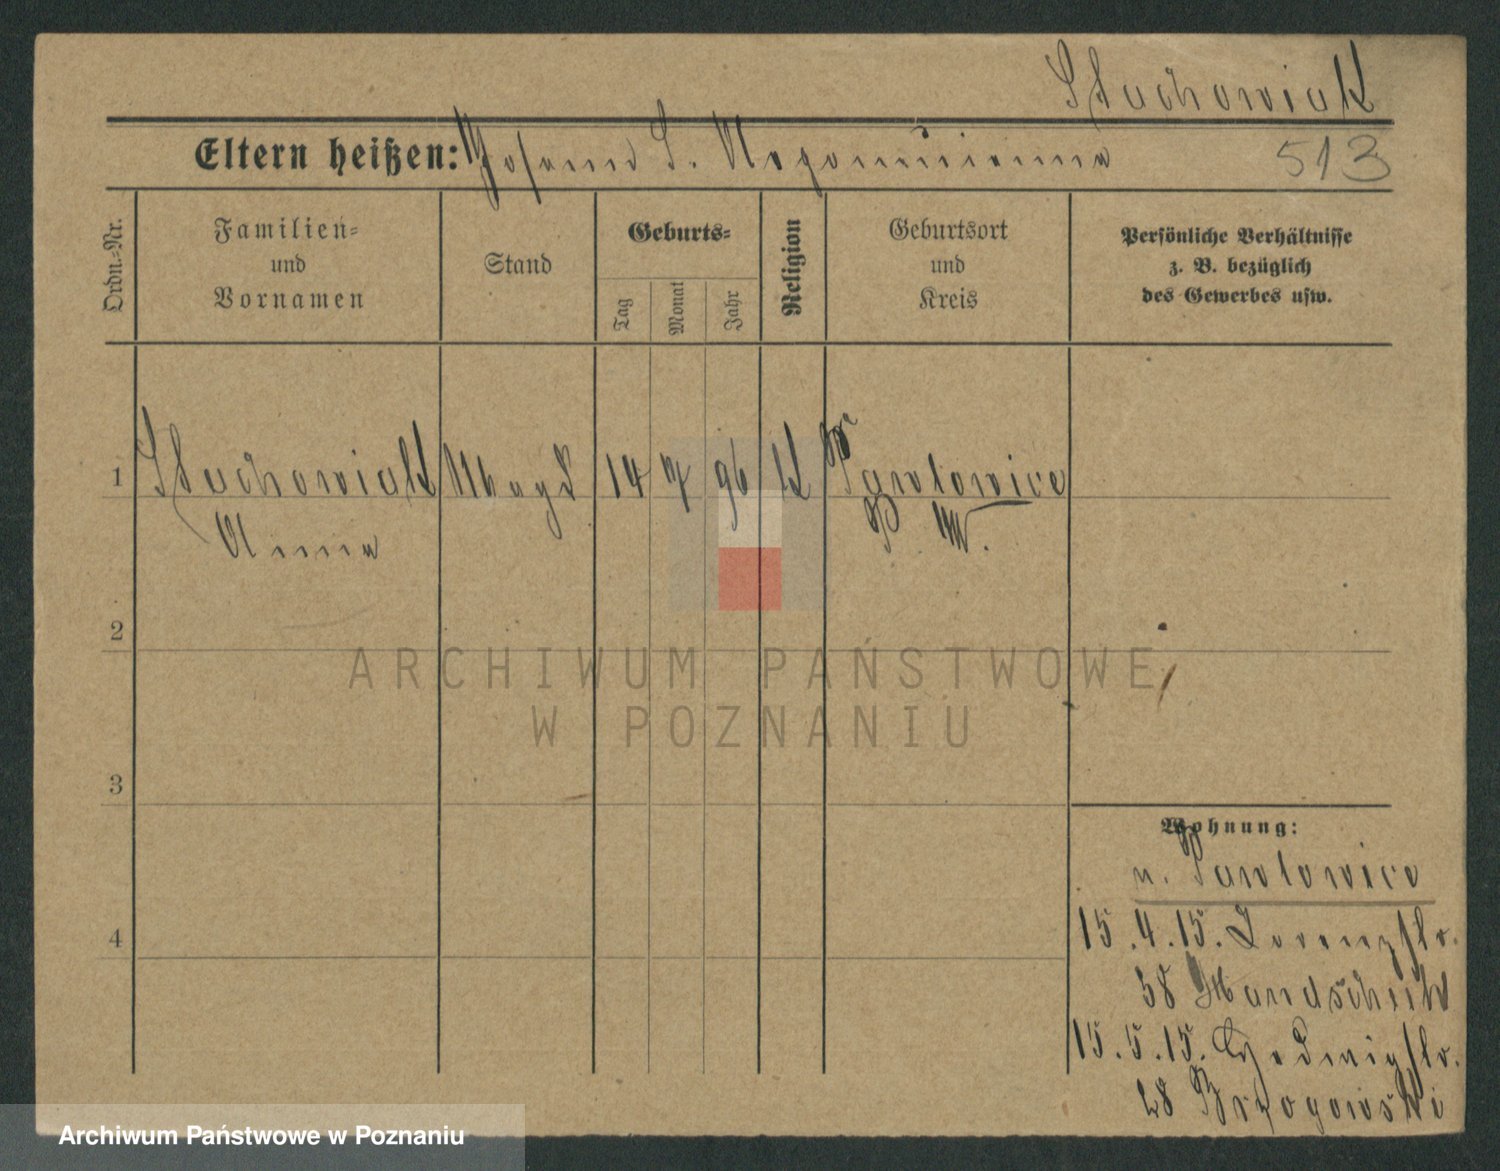 Stachowiak
Eltern heißen: Johann S. 513
Ordn.-Nr.
Familien-
und
Vornamen
Stand
Geburts-
Tag
Monat
Jahr
Religion
Geburtsort
und
Kreis
Persönliche Verhältnisse
z. B. bezüglich
des Gewerbes usw.
1 Stachowiak Magd 14 7 96 K Pawlowice
Anna P. W.
2
3
4
Wohnung:
n. Pawlowice
15.4.15. Lorenzstr.
38 Handschuk
15.5.15. Hedwigstr.
28 Brzogowski
ARCHIWUM PAŃSTWOWE
W POZNANIU
Archiwum Państwowe w Poznaniu